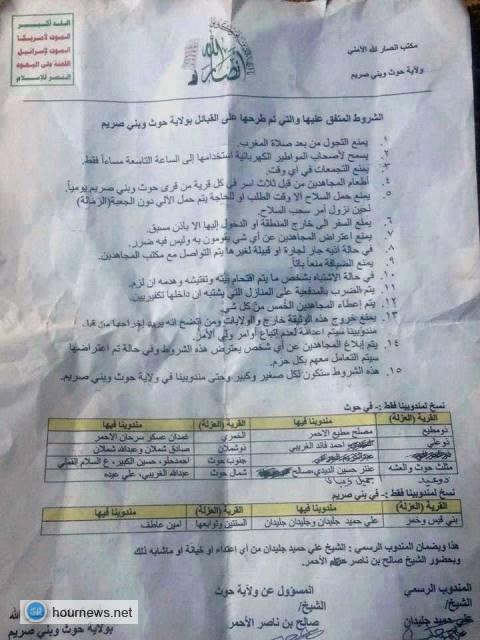 الله أكبر
الموت لأمريكا
الموت لإسرائيل
اللعنة على اليهود
النصر للإسلام
أنصار الله
مكتب انصار لله الأمني
ولاية حوث وبني صريم
الشروط المتفق عليها والتي تم طرحها على القبائل بولاية حوث وبني صريم
١. يمنع التجول من بعد صلاة المغرب.
٢. يسمح لأصحاب المواطير الكهربائية استخدامها إلى الساعة التاسعة مساءاً فقط.
٣. يمنع التجمعات في أي وقت.
٤. أطعام المجاهدين من قبل ثلاث اسر في كل قرية من قرى حوث وبني صريم يومياً.
٥. يمنع حمل السلاح الا وقت الطلب او للحاجة يتم حمل الالي دون الجعبة(الزمالة)
لحين نزول أمر سحب السلاح.
٦. يمنع السفر الى خارج المنطقة او الدخول إليها الا بأذن مسبق.
٧. يمنع أعتراض المجاهدين عن أي شي يقومون به وليس فيه ضرر.
٨. في حالة أتيه جار لجارة او قبيلة لغيرها يتم التواصل مع مكتب المجاهدين.
٩. يمنع الضيافة منعاً باتاً.
١٠. في حالة الاشتباه بشخص ما يتم اقتحام بيته وتفتيشه وهدمه ان لزم.
١١. يتم الضرب بالمدفعية على المنازل التي يشتبه ان داخلها تكفيريين.
١٢. يتم إعطاء المجاهدين الخمس من كل شي.
١٣. يمنع خروج هذه الوثيقة خارج والولايات ومن اتضح انه يريد إخراجها من قبل
مندوبينا سيتم اعدامة لعدم إتباع أوامر ولي الأمر.
١٤. يتم إبلاغ المجاهدين عن أي شخص يعترض هذه الشروط وفي حالة تم اعتراضها
سيتم التعامل معهم بكل حزم.
١٥. هذه الشروط ستكون لكل صغير وكبير وحتى مندوبينا في ولاية حوث وبني صريم.
نسخ لمندوبينا فقط :- في حوث
القرية (العزلة) مندوبنا فيها القرية (العزلة) مندوبنا فيها
ذومطيع مصلح مطيع الاحمر الخمري غمدان عسكر سرحان الاحمر
ذوعلي احمد فائد الغريبي ذوشملان صادق شملان وعبدالله شملان
جنوب حوث احمدحلو، حسين الكبير، ع السلام الفقلي
مثلث حوث والعشه عنتر حسين الديدي، صالح شمال حوث عبدالله الغريبي، علي عيده
نسخ لمندوبينا فقط :- في بني صريم
القرية (العزلة) مندوبنا فيها القرية (العزلة) مندوبنا فيها
بني قيس وخمر علي حميد جليدان وجليدان جليدان السنتين وتوابعها امين عاطف
هذا وبضمان المندوب الرسمي : الشيخ علي حميد جليدان من أي أعتداء او خيانة او ماشابه ذلك
وبحضور الشيخ صالح بن ناصر الأحمر.
المندوب الرسمي المسؤول عن ولاية حوث
الشيخ/ الشيخ/
علي حميد جليدان صالح بن ناصر الأحمر
بولاية حوث وبني صريم
hournews.net